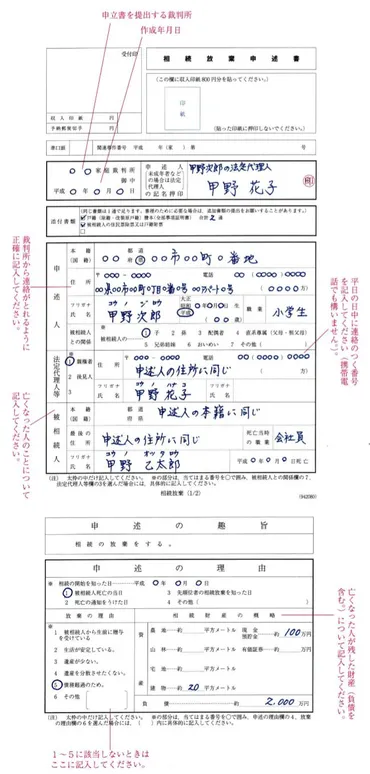 申立書を提出する裁判所
作成年月日
受付印
相続放棄申述書
(この欄に収入印紙800円分を貼ってください。)
印
紙
(貼った印紙に押印しないでください。)
収入印紙 円
予納郵便切手 円
準口頭 関連事件番号 平成 年(家)第 号
○○家庭裁判所
御中
平成○年○月○日
申述人
未成年者など
の場合は法定
代理人
の記名押印
甲野次郎の法定代理人
甲野 花子
印
添付書類
(同じ書類は1通で足ります。審理のために必要な場合は、追加書類の提出をお願いすることがあります。)
戸籍(除籍・改製原戸籍)謄本(全部事項証明書) 合計2通
被相続人の住民票除票又は戸籍附票
裁判所から連絡がとれるように
正確に記入してください。
平日の日中に連絡のつく番号
を記入してください(携帯電
話でも構いません。)。
申述人
本籍
(国籍)
都道
府県
○○市○○町○番地
住所
〒○○○-○○○○ 電話 ○○(○○○○)○○○○
○○県○○市○○町○丁目○番○号○○アパート○号
(○○○○方)
フリガナ
氏名
コウノ ジロウ
甲野次郎
大正
昭和
平成
○年○月○日生
職業
小学生
被相続人
との関係
被相続人の
1 子 2 孫 3 配偶者 4 直系尊属(父母・祖父母)
5 兄弟姉妹 6 おいめい 7 その他( )
法定代理人等
1 親権者
2 後見人
3
住所
〒○○○-○○○○ 電話 ○○○(○○○)○○○○
申述人の住所に同じ
フリガナ
氏名
コウノ ハナコ
甲野花子
フリガナ
氏名
亡くなった人のことについて
記入してください。
被相続人
本籍
(国籍)
都道
府県
申述人の本籍に同じ
最後の
住所
申述人の住所に同じ
死亡当時
の職業
会社員
フリガナ
氏名
コウノ オツタロウ
甲野 乙太郎
平成○年○月○日死亡
(注) 太枠の中だけ記入してください。 ※の部分は、当てはまる番号を○で囲み、被相続人との関係欄の7、
法定代理人等欄の3を選んだ場合には、具体的に記入してください。
相続放棄(1/2)
申述の趣旨
相続の放棄をする。
申述の理由
※ 相続の開始を知った日……平成○年○月○日
1 被相続人死亡の当日 3 先順位者の相続放棄を知った日
2 死亡の通知をうけた日 4 その他( )
放棄の理由
相続財産の概略
※
1 被相続人から生前に贈与
を受けている
2 生活が安定している。
3 遺産が少ない。
4 遺産を分散させたくない。
5 債務超過のため。
6 その他
資産
農地……約 平方メートル
現金
預貯金……約100万円
山林……約 平方メートル
有価証券……約 万円
宅地……約 平方メートル
建物……約20平方メートル
負債……約2,000万円
(注) 太枠の中だけ記入してください。 ※の部分は、当てはまる番号を○で囲み、申述の理由欄の4、放棄
の理由欄の6を選んだ場合には、( )内に具体的に記入してください。
亡くなった人が残した財産(負債を
含む。)について記入してください。
1～5に該当しないときは
ここに記入してください。